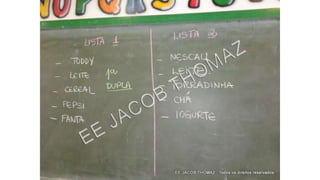 LISTA 1
- TODDY
- LEITE
- CEREAL
- PEPSI
- FANTA
1ª
DUPLA
LISTA
- NESCAU
- LEITE
- TORRADINHA
- CHÁ
- IOGURTE
EE JACOB THOMAZ
EE JACOB THOMAZ - Todos os direitos reservados